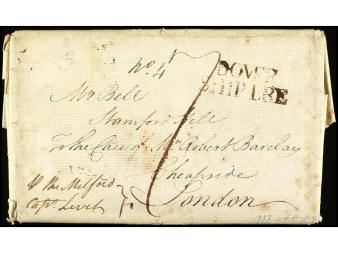 No. 4
DOVER
SHIP LRE
Mr Bell
Stamford Hill
To the Care of Mr Robert Barclay
Cheapside
London
7
P the Milford
Capt. Lovel